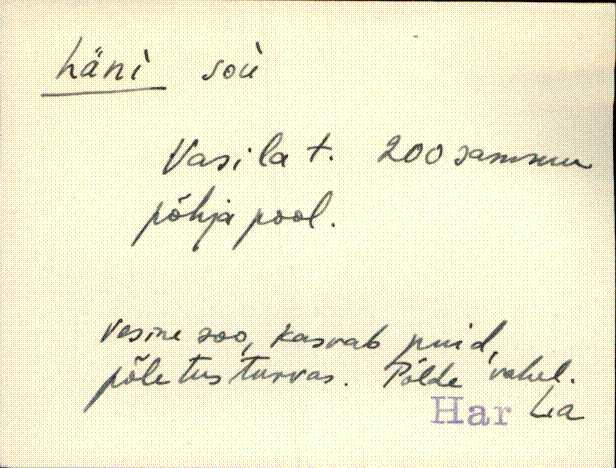 häni soù
Vasila t. 200 sammu
põhja pool.
vesine soo, kasvab puid,
põletusturvas. Põlde vahel.
Har Lia